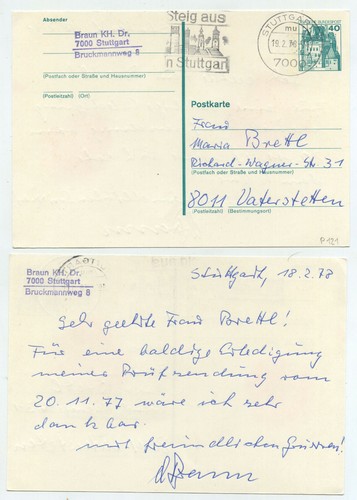 Absender
Braun KH. Dr.
7000 Stuttgart
Bruckmannweg 8
(Postfach oder Straße und Hausnummer)
(Postleitzahl) (Ort)
Steig aus
in Stuttgart
STUTTGART
mu
19.2.78
7000
40
Postkarte
Frau
Maria Brettl
Richard-Wagner-Str. 31
(Postfach oder Straße und Hausnummer)
8011 Vaterstetten
(Postleitzahl) (Bestimmungsort)
P 121
Braun KH. Dr.
7000 Stuttgart
Bruckmannweg 8
Stuttgart, 18.2.78
Sehr geehrte Frau Brettl!
Für eine baldige Erledigung
meiner Prüfsendung vom
20.11.77 wäre ich sehr
dankbar.
mit freundlichen Grüssen!
Braun